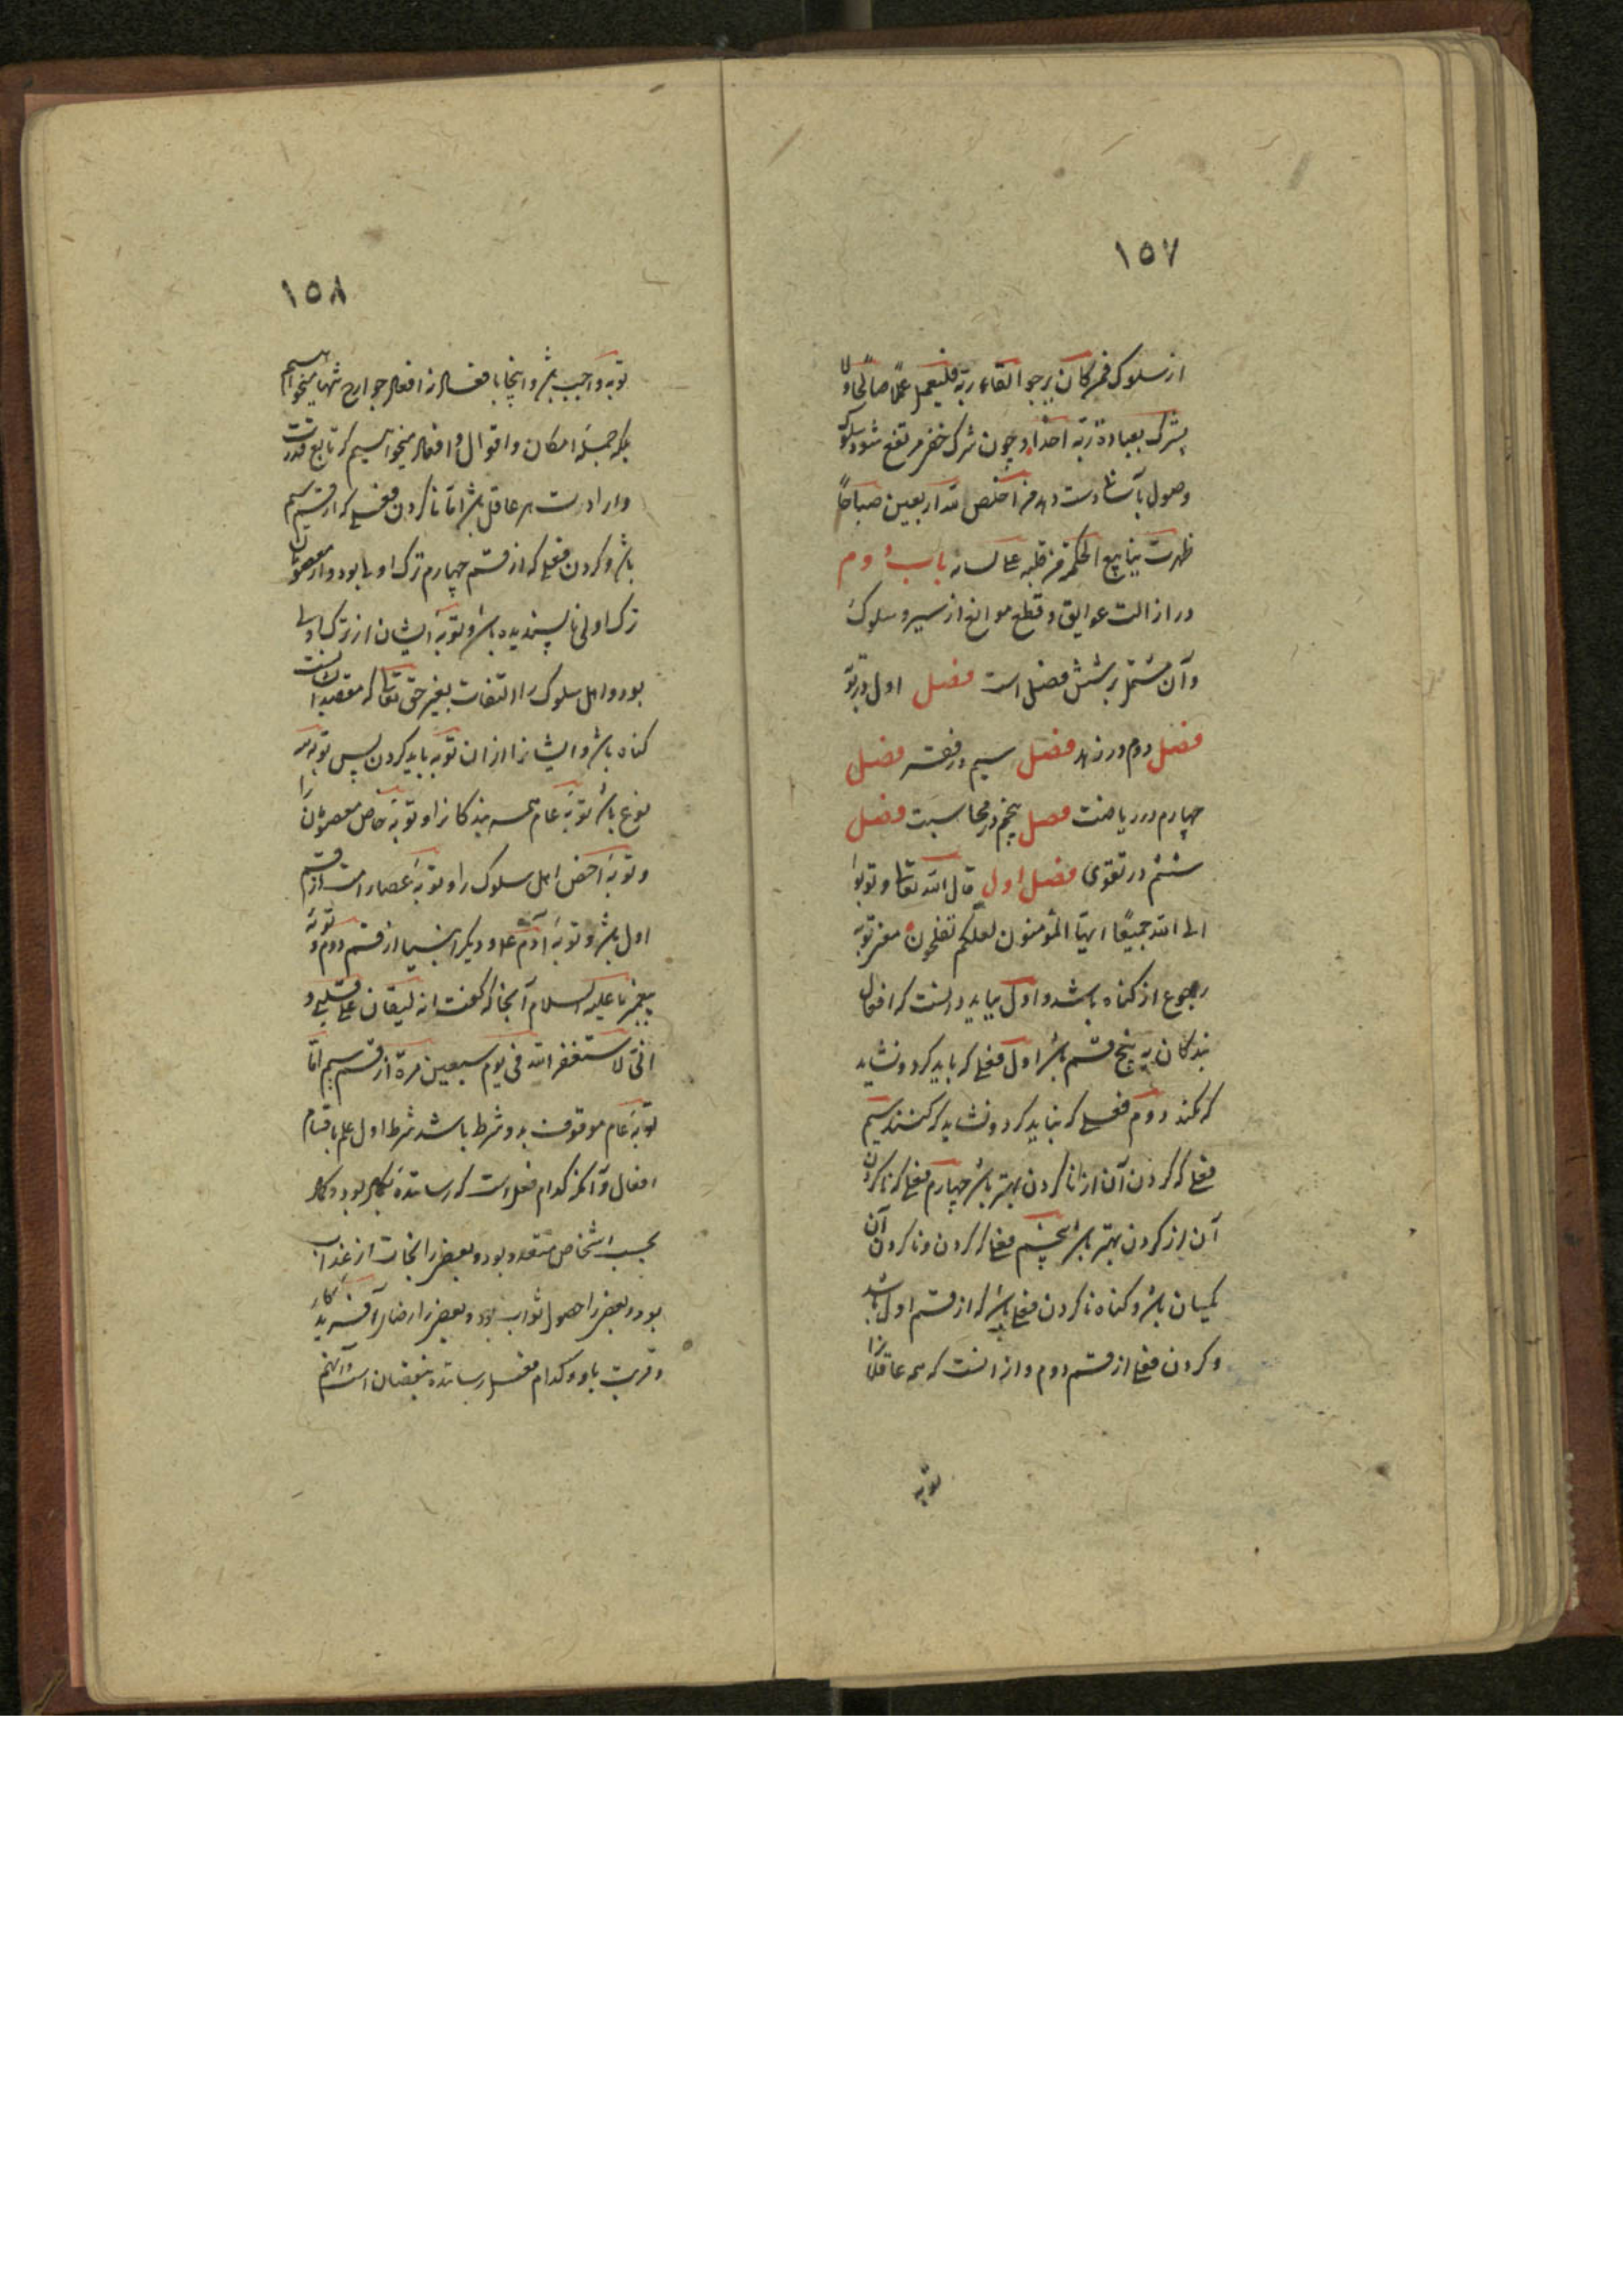 ١٥٧
از سلوک فمن کان یرجوا لقاء ربه فلیعمل عملا صالحا ولا
یشرک بعبادة ربه احدا و چون شرک خفی مرتفع شود سلوک
وصول بآسانی دست دهد من اخلص لله اربعین صباحاً
ظهرت ینابیع الحکمة من قلبه علی لسانه باب دوم
در ازالت عوایق و قطع موانع از سیر و سلوک
و آن مشتمل بر شش فصل است فصل اول در توبه
فصل دوم در زهد فصل سیم در فقر فصل
چهارم در ریاضت فصل پنجم در محاسبت فصل
ششم در تقوی فصل اول قال الله تعالی و توبوا
الی الله جمیعًا ایها المؤمنون لعلکم تفلحون معنی توبه
رجوع از کناه باشد و اول بباید دانست که افعال
بندکان بر پنج قسم باشد اول فعلی که باید کرد و نشاید
که نکنند دوم فعلی که نباید کرد و نشاید که کنند سیم
فعلی که کردن آن از ناکردن بهتر باشد چهارم فعلی که ناکردن
آن از کردن بهتر باشد پنجم فعلی که کردن و ناکردن آن
یکسان باشد و کناه ناکردن فعلی باشد که از قسم اول باشد
و کردن فعلی از قسم دوم و از آنست که همه عاقلانرا
توبه
١٥٨
توبه واجب باشد و اینجا بافعال نه افعال جوارح تنها میخواهیم
بلکه جمله افکار و اقوال و افعال میخواهیم که تابع قدرت
و ارادت هر عاقل باشد اما ناکردن فعلی که از قسم سیم
باشد و کردن فعلی که از قسم چهارم ترک اولی بود و از معصومان
ترک اولی ناپسندیده باشد و توبه ایشان از ترک اولی
بود و اهل سلوک را التفات بغیر حق تعالی که مقصد ایشانست
کناه باشد و ایشانرا از ان توبه باید کردن پس توبه سه
نوع باشد توبه عام همه بندکانرا و توبه خاص معصومان را
و توبه اخص اهل سلوک را و توبه عصاه امت از قسم
اول باشد و توبه آدم ع و دیکر انبیا از قسم دوم و توبه
پیغمبر ما علیه السلام آنجا که کفت انه لیغان علی قلبی و
انی لاستغفر الله فی یوم سبعین مرة از قسم سیم اما
توبه عام موقوف بدو شرط باشد شرط اول علم باقسام
افعال و آنکه کدام فعل است که رساننده بکمال بود و کمال
بحسب اشخاص متعدد بود و بعضی را نجات از عذاب
بود و بعضی را حصول ثواب بود و بعضی را رضای آفریدکار
و قربت باو و کدام فعل رساننده بنقصان است و آنهم